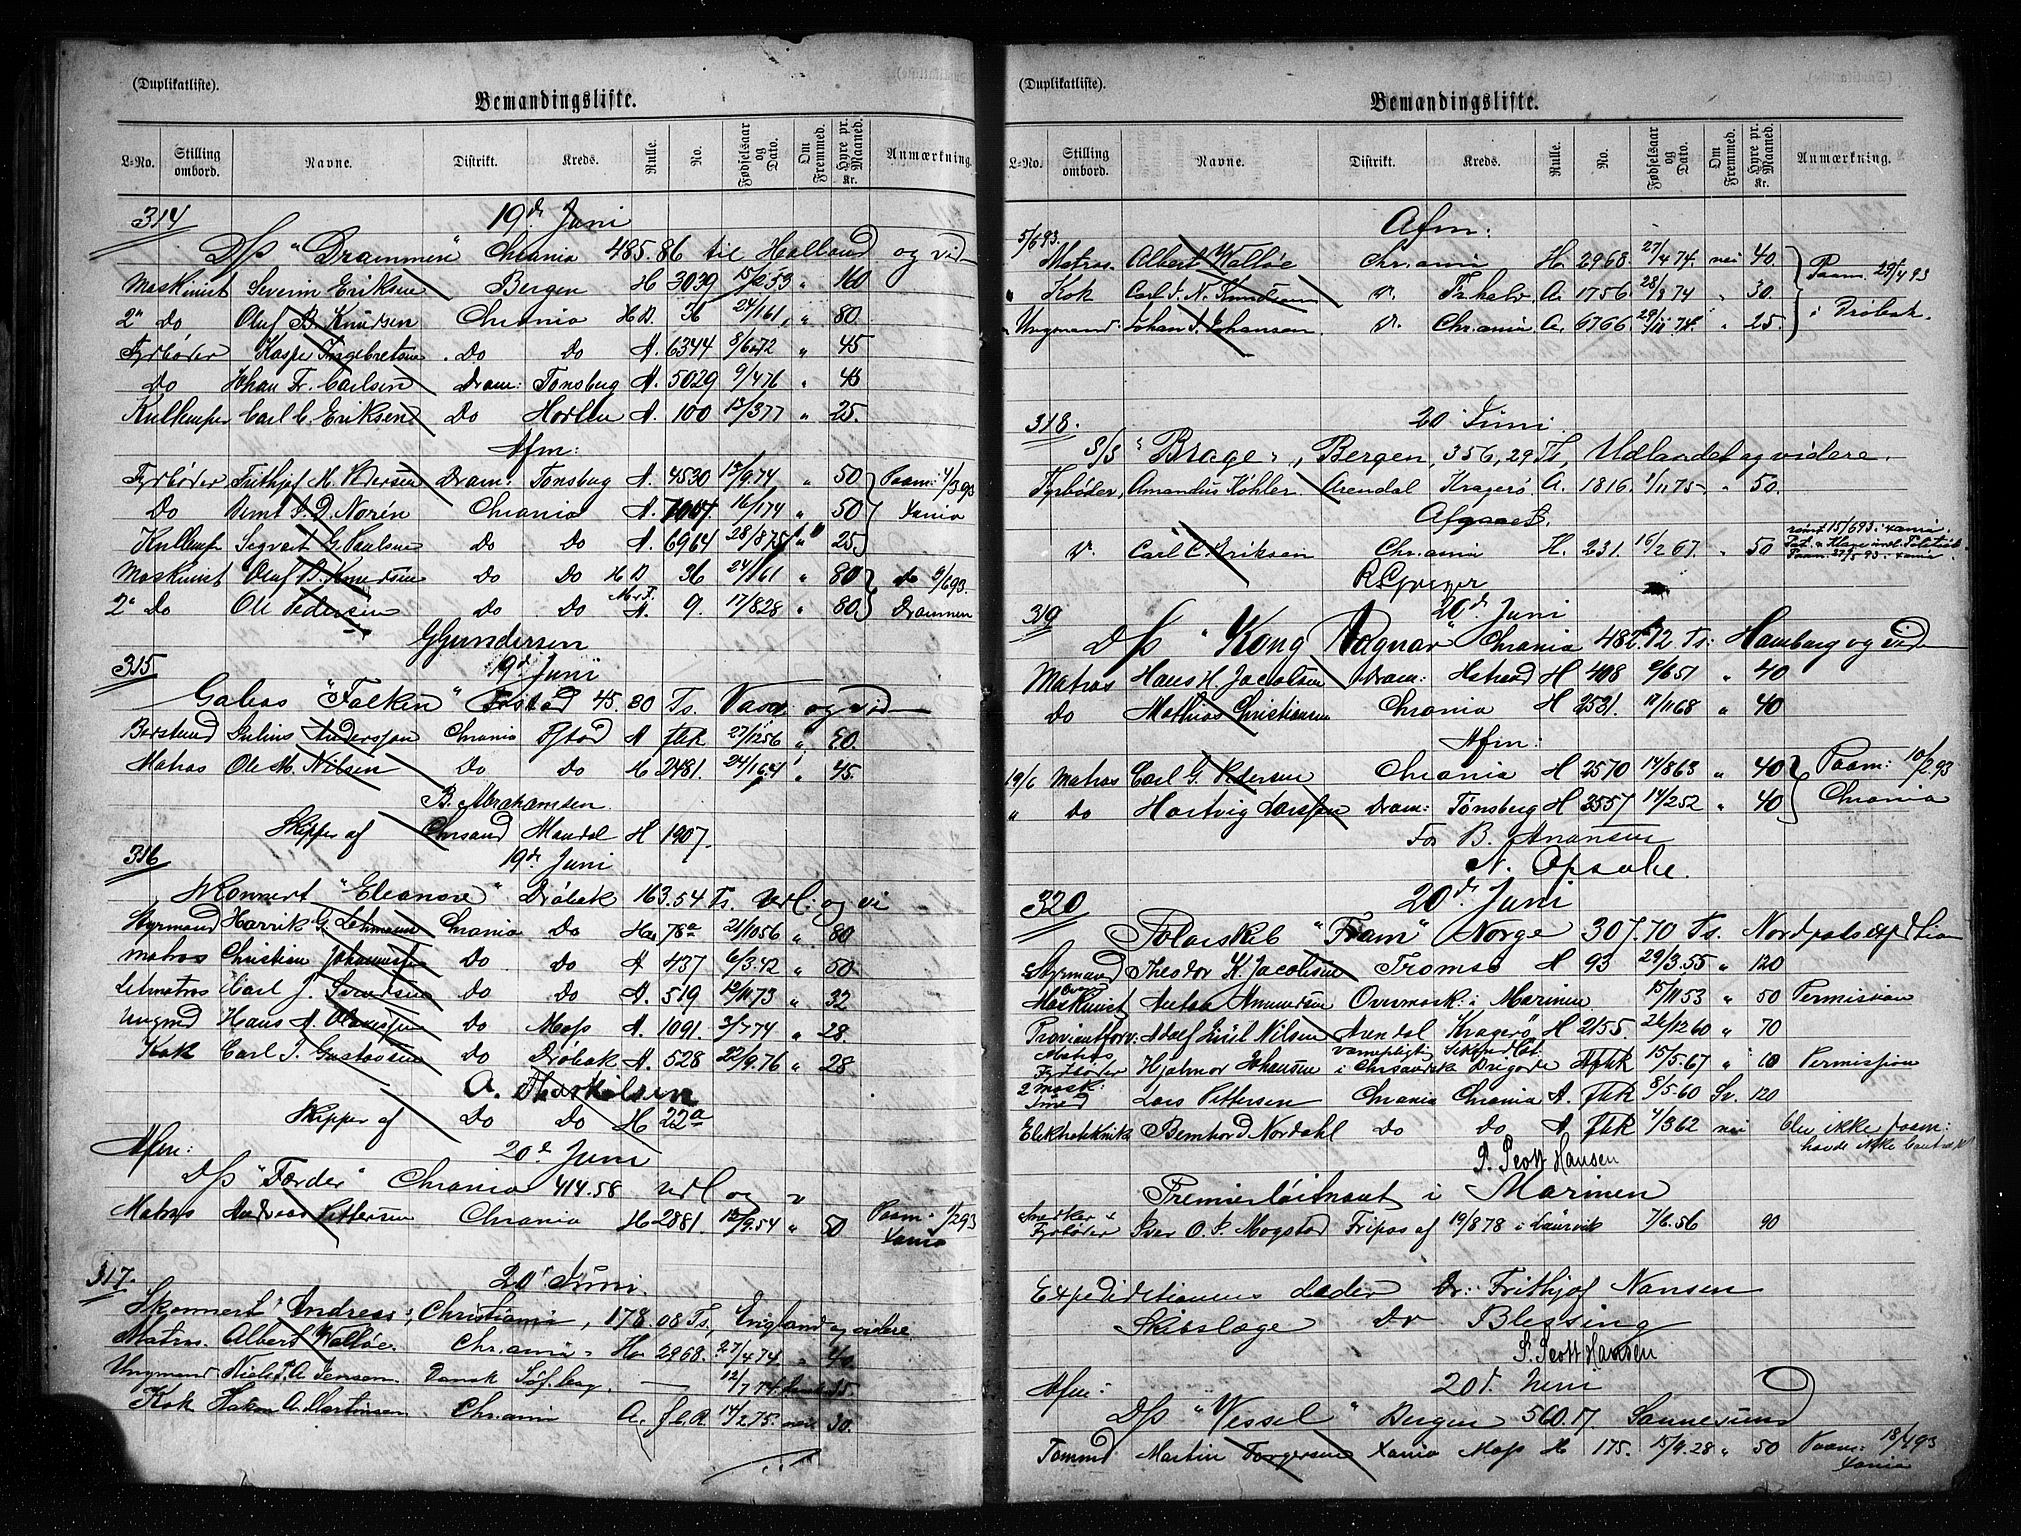 (Duplikatliste).
Bemandingsliste.
L-No. Stilling ombord. Navne. Distrikt. Kreds. Rulle. No. Fødselsaar og Dato. Om Fremmed. Hyre pr. Maaned. Kr. Anmærkning.
314 19de Juni
D/S "Drammen" Chrania 485.86 til Holland og vid
Maskinist Severin Eriksen Bergen H 3039 15/2 53 " 160
2n Do Oluf B. Knudsen Chrania HD. 36 24/1 61 " 80
Fyrbøder Kasper Ingebretsen Do Do A. 6344 8/6 72 " 45
Do Johan Fr. Carlsen Dram: Tønsberg A. 5029 9/4 76 "
Kullemper Carl C. Eriksen Do Horten A. 100 13/3 77 " 25.
Afm:
Fyrbøder Frithjof M. Pedersen Dram: Tønsberg A. 4530 13/9 74 " 50 Paam: 4/3 93
Do Bernt Norén Chrania A. 7007 16/1 74 " 50 Xania
Kullemp Sigvart G. Paulsen Do Do A. 6964 28/8 75 " 25
Maskinist Oluf B. Knudsen Do Do HD 36 24/1 61 " 80 Do 6/6 93.
2n Do Ole Pedersen Do Do A 9. 17/8 28 " 80 Drammen
G Gundersen
19d Juni
315
Galias "Falken" 45.80 Ts. Vasa og vid
Bestmand Julius Anderssen Chrania A flR 27/12 56 "
Matros Ole M. Nilsen Do Do H 2481. 24/1 64 " 45.
B. Abrahamsen
Skipper af Chrsand Mandal H 1907.
316 19de Juni
Skonnert "Eleanore" Drøbak 163.54 Ts. Udl: og vi
Styrmand Henrik G. Lehmann Chrania Do 78a 21/10 56 " 80
Matros Christian Johannessen Do Do A 437 6/3 42 " 50
Letmatros Carl J. Do Do A. 519 12/11 73 " 32
Ungmd Hans A. Do Moss A. 1091. 3/7 74 " 28.
Kok Carl J. Gustavsen Do Drøbak A. 528 22/9 76 " 28
A. Therkelsen
Skipper af Do Do H 22a
Afm: 20d Juni
D/S "Færder" Chrania 414.58 Udl og v
Matros Andreas Pettersen Chrania H 2881. 13/9 54 " 50 Paam 1/2 93 Xania
317. 20' Juni
Skonnert "Andreas", Christiania, 178.08 Ts, England og videre
Matros. Albert Walløe Chr.ania H. 2968. 27/4 74 " 40.
Ungmand Niels A Jensen Dansk Søf. bog. — 12/7 74 35
Kok Hakon A. Martinsen Chr.ania A. flR. 14/2 75 nei 30.

(Duplikatliste).
Bemandingsliste.
L-No. Stilling ombord. Navne. Distrikt. Kreds. Rulle. No. Fødselsaar og Dato. Om Fremmed. Hyre pr. Maaned. Kr. Anmærkning.
Afm:
5/6 93. Matros. Albert Walløe Chr.ania H. 2968. 27/4 74. nei 40. Paam. 25/4 93
" Kok Carl J. N. Knudsen Do. Fr.hald A. 1756 28/8 74 " 30. i Drøbak.
Ungmand Johan J. Johansen Do. Chr.ania A. 6766 29/11 74 " 25.
318. 20' Juni
S/S "Brage", Bergen, 356,29 Ts, Udlandet og videre.
Fyrbøder, Amandus Køhler. Arendal Kragerø A. 1816. 1/11 75. " 50.
Afgaaet.
Do. Carl C. Eriksen Chr.ania H. 231. 16/2 67. " 50 rømt 15/6 93. i Xania. Paam. 27/5 93. i Xania
319 20d Juni
D/S "Kong Ragnar" Chrania 482.12 Ts: Hamburg og vid
Matros Hans H. Jacobsen Dram: H 408 6/6 51 " 40
Do Mathias Christiansen Chrania H 2521. 17/11 68 " 40
Afm:
19/6 Matros Carl G. Pedersen Chrania H 2570 14/8 63 " 40 Paam: 10/2 93
" Do Hartvig Larssen Dram: Tønsberg H 3557 14/2 52 " 40 Chrania
For B. Anansen
N. Opsahe.
320 20d Juni
Polarskib "Fram" Norge 307.70 Ts. Nordpolsexpedition
Styrmand Theodor K. Jacobsen Tromsø H 93 29/3.55 " 120
Maskinist Anton Amundsen Overmask: i Marinen 15/11 53 " 50 Permission
Proviantforv: Adolf Juel Nilsen Arendal Kragerø H 2155 26/12 60 " 70
Matros Fyrbøder Hjalmar Johansen vernepligtig Sekondløt. i Chrsandsk Brigade A flR 15/5.67 " Permission
2 Mask: Smed Lars Pettersen Chrania Chrania A. flR 8/5.60 Sv. 120
Elektroteknik Bernhard Nordahl Do Do A flR 4/3 62 nei blev ikke paam: havde ikke Contrakt
S. Scott Hansen
Premierløitnant i Marinen
Snedker & Fyrbøder Ivar O. I. Mogstad Fripas af 19/8 78 i Laurvik 7/6.56 90
Expeditionens Leder Dr: Frithjof Nansen
Skibslæge Dr Blessing
S. Scott Hansen
Afm: 20d. Juni
D/S "Vessel" Bergen 560.17. Sannesund
Tømmd Martin Torgersen Xania Moss H 175. 15/9.28 " 50 Paam: 18/4 93 Xania